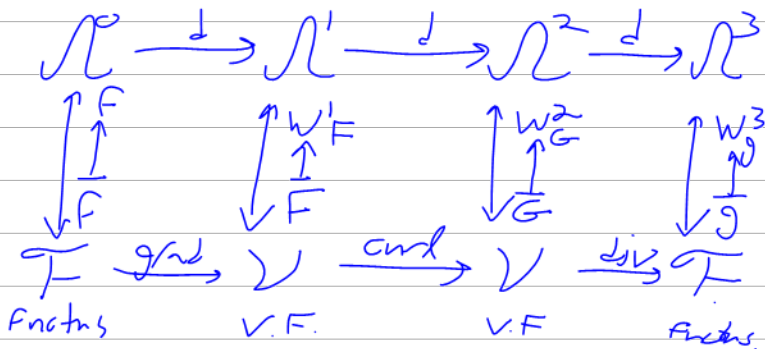 Ω⁰ —d→ Ω¹ —d→ Ω² —d→ Ω³
F W¹_F W²_G W³_g
F F G g
F grad V curl V div F
Fnctns V.F. V.F Fnctns.